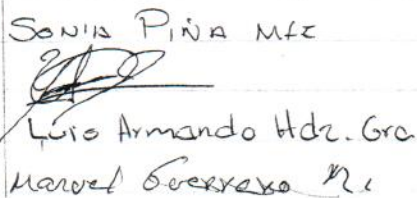 Sonia Piña Mtz
Luis Armando Hdz. Gra
Manuel Guerrero